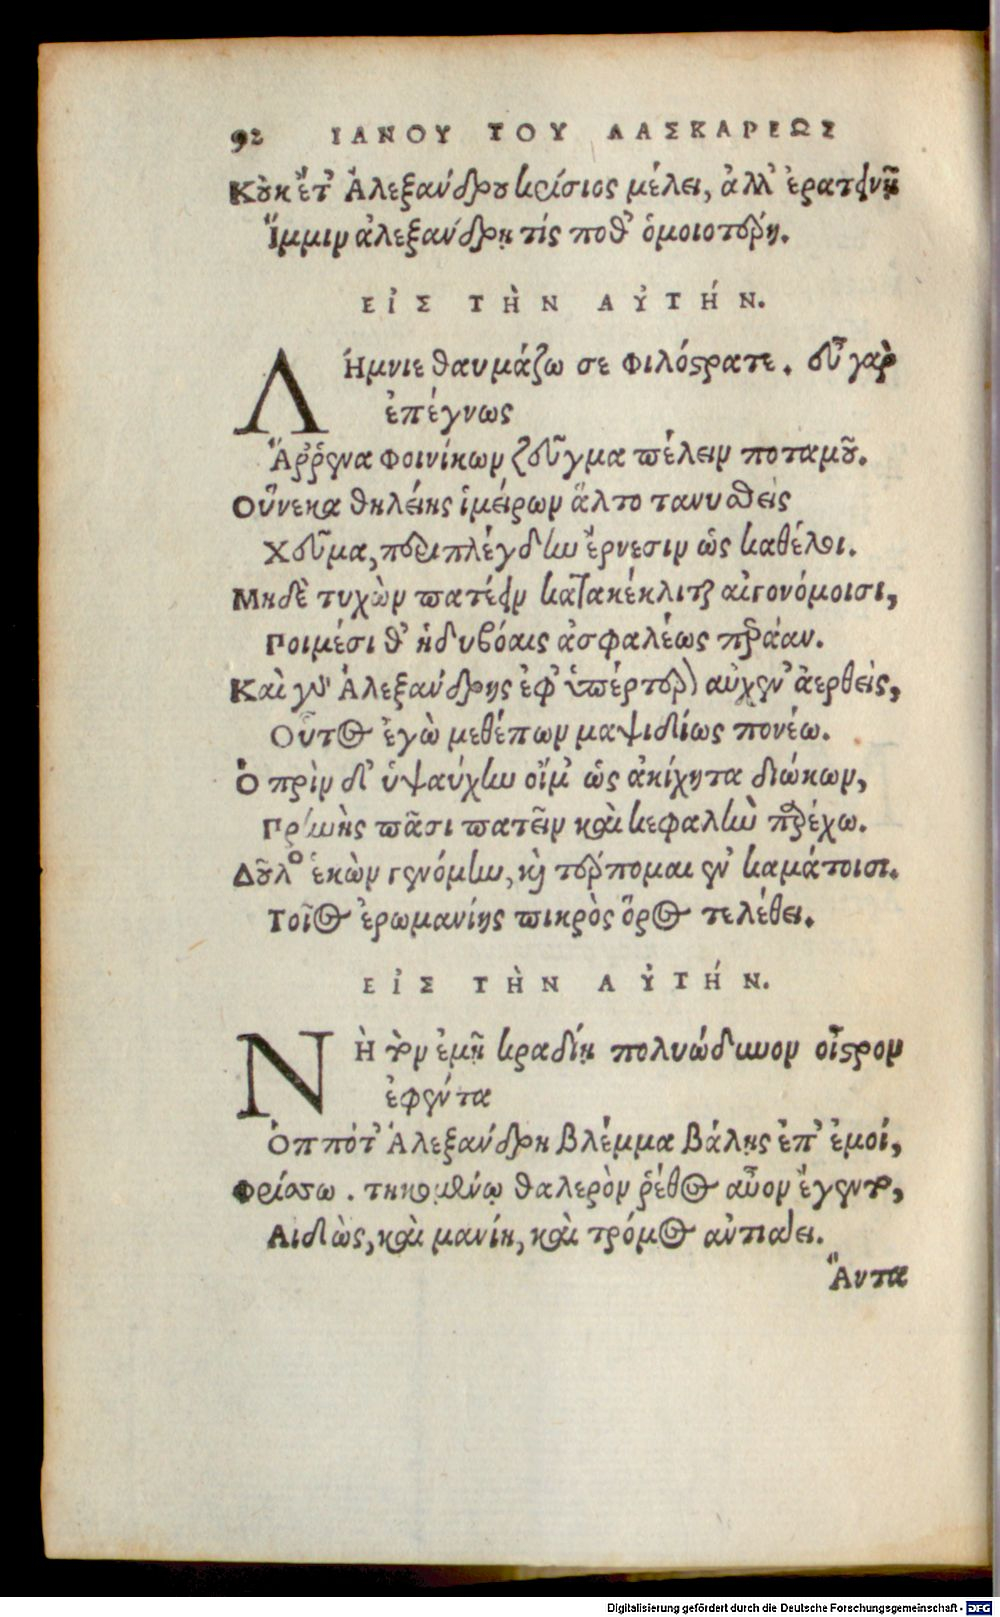 92 ΙΑΝΟΥ ΤΟΥ ΛΑΣΚΑΡΕΩΣ
Κοὐκ ἔτ' Ἀλεξάνδρου κρίσιος μέλει, ἀλλ' ἐρατεινῇ
Ἴμμιν ἀλεξάνδρῃ τίς ποθ' ὁμοιοτέρη.
ΕἸΣ ΤῊΝ ΑὙΤΉΝ.
ΛΉμνιε θαυμάζω σε Φιλόστρατε. εὖ γὰρ
ἐπέγνως
Ἄρρενα φοινίκων ζεῦγμα πέλειν ποταμοῦ.
Οὕνεκα θηλείης ἱμείρων ἆλτο τανυσθεὶς
Χεῦμα, περιπλέγδην ἔρνεσιν ὡς καθέλοι.
Μηδὲ τυχὼν πατέειν κατακέκλιται αἰγονόμοισι,
Ποιμέσι θ' ἡδυβόαις ἀσφαλέως περάαν.
Καὶ γὰρ Ἀλεξάνδρης ἐφ' ὑπέρτερον αὐχέν' ἀερθεὶς,
Οὗτος ἐγὼ μεθέπων μαψιδίως πονέω.
Ὁ πρὶν δ' ὑψαύχην οἴμ' ὡς ἀκίχητα διώκων,
Πρηνὴς πᾶσι πατεῖν καὶ κεφαλὴν παρέχω.
Δοῦλος ἑκὼν γενόμην, καὶ τέρπομαι ἐν καμάτοισι.
Τοῖος ἐρωμανίης πικρὸς ὅρος τελέθει.
ΕἸΣ ΤῊΝ ΑὙΤΉΝ.
ΝῊ τὸν ἐμῇ κραδίῃ πολυώδυνον οἶστρον
ἐφέντα
Ὁππότ' Ἀλεξάνδρη βλέμμα βάλῃς ἐπ' ἐμοί,
Φρίσσω. θαλερὸν ῥέθος αὖον ἔγεντο,
Αἰδὼς, καὶ μανίη, καὶ τρόμος ἀντιάει.
Ἄντα
Digitalisierung gefördert durch die Deutsche Forschungsgemeinschaft - DFG